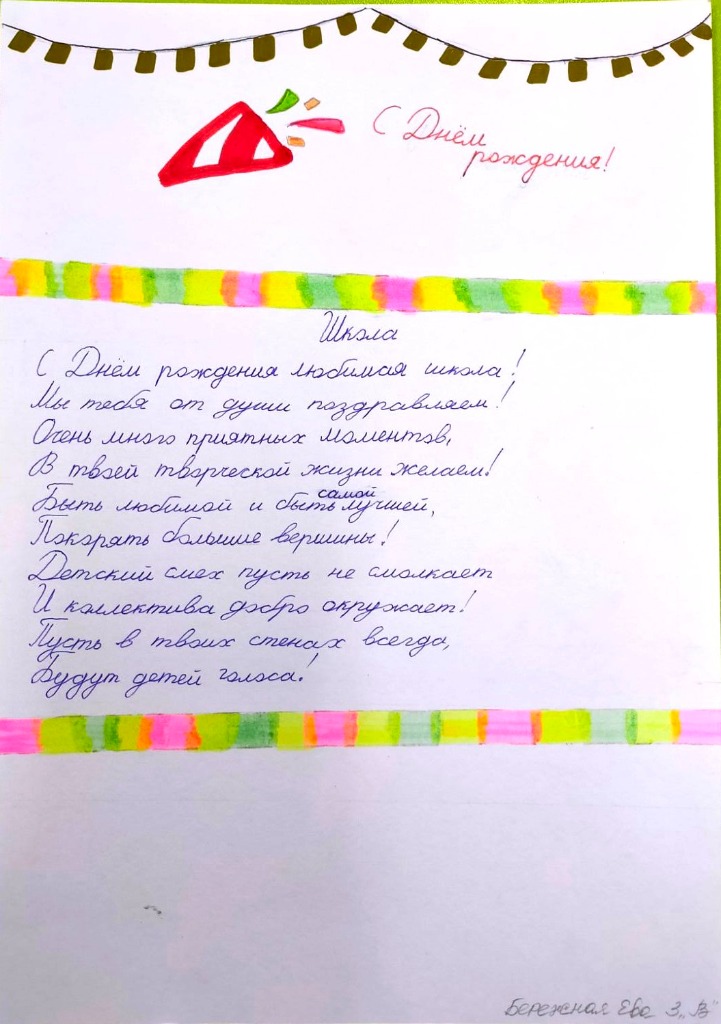 С Днём
рождения!
Школа
С Днём рождения любимая школа!
Мы тебя от души поздравляем!
Очень много приятных моментов,
В твоей творческой жизни желаем!
Быть любимой и быть самой лучшей,
Покорять большие вершины!
Детский смех пусть не смолкает
И коллектива добро окружает!
Пусть в твоих стенах всегда,
Будут детей голоса!
Бережная Ева 3„В"